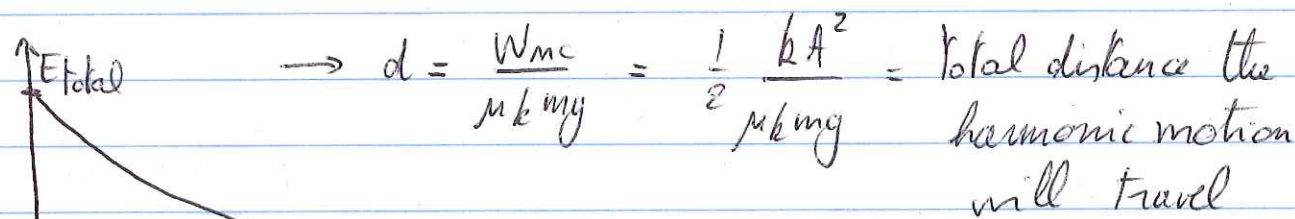 Etotal → d = Wnc / μk mg = 1/2 kA² / μk mg = total distance the
harmonic motion
will travel